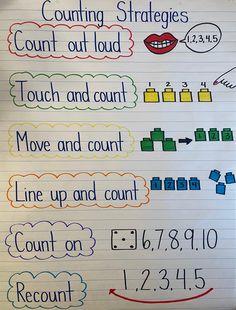 Counting Strategies
Count out loud
1,2,3,4,5
Touch and count
1 2 3 4
Move and count
1 2 3
Line up and count
1 2 3 4
Count on
6,7,8,9,10
Recount
1,2,3,4,5